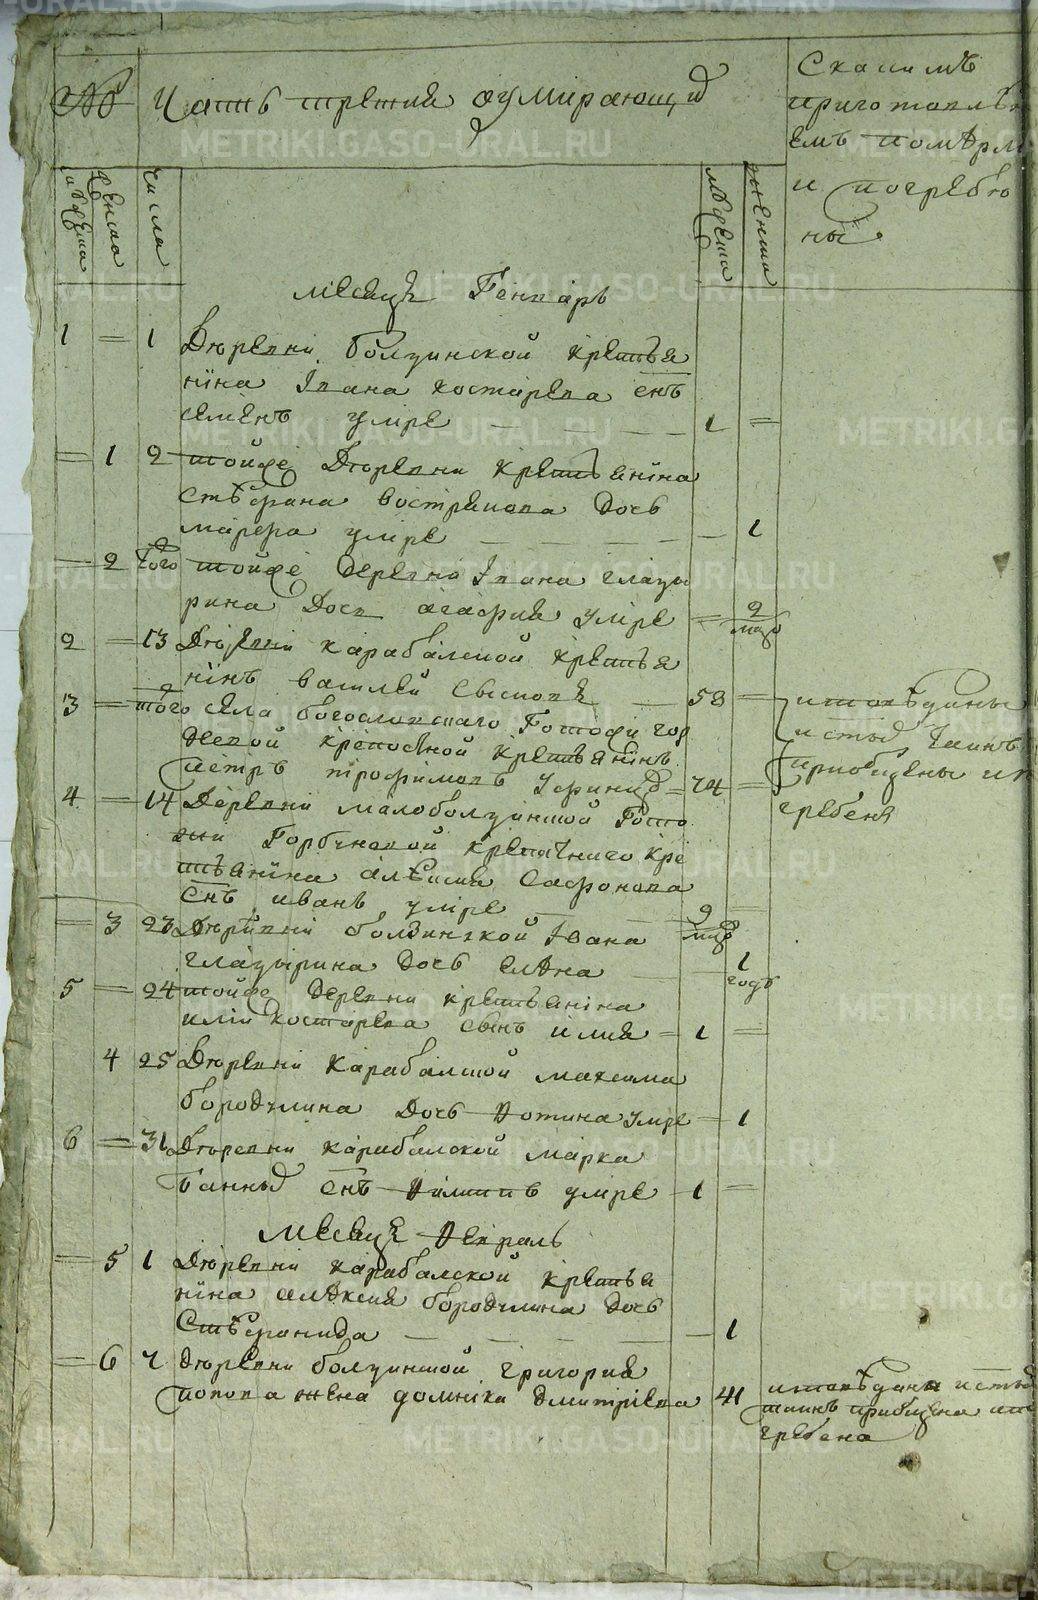 № Часть третия оумирающих
Скацимъ
приготовле
емъ помѣрли
и погребѣ
ны
числа
женска
женска
месяцъ Генваръ
1 = 1 Дюревни болзинской крестья
нина Iвана костарева снъ
семенъ умре — — — 1 =
= 1 2 тойже Дюревни крестьянина
стефана вострикова Дочь
марфа умре — — — 1
= 2 того тойже деревни Iвана глазы
рина Дочь агафия умре = 2
мцо
2 = 13 Дюревни карабалской крестья
нинъ василей — 58 =
3 = того села богословскаго Госпожи гор
деевой крепосной крестьянинъ
петръ трофимовъ = 74 =
исповѣданы
и стых таинъ
приобщены и п
гребены
4 = 14 Деревни малоболзинской Госпо
жи Горбуновой крепосного кре
стьянина алексия Сафонова
снъ иванъ умре — 2 =
мцо
= 3 23 Дюревни болзинской Iвана
глазырина дочь елена — 1
годъ
5 = 24 тойже деревни крестьянина
илии костарева сынъ илия = 1 =
4 25 Дюревни карабалской максима
бородулина Дочь фотина умре — 1
6 = 31 Дюревни карабалской марка
банных снъ филипъ умре — 1 =
месяцъ февраль
= 5 1 Дюревни карабалской крестья
нина алексия бородулина дочь
Стефанида — — — 1
= 6 7 дюревни болзинской григория
попова жена домника дмитриева 41
исповѣдана и стых
таинъ приобщена ип
гребена
METRIKI.GASO-URAL.RU